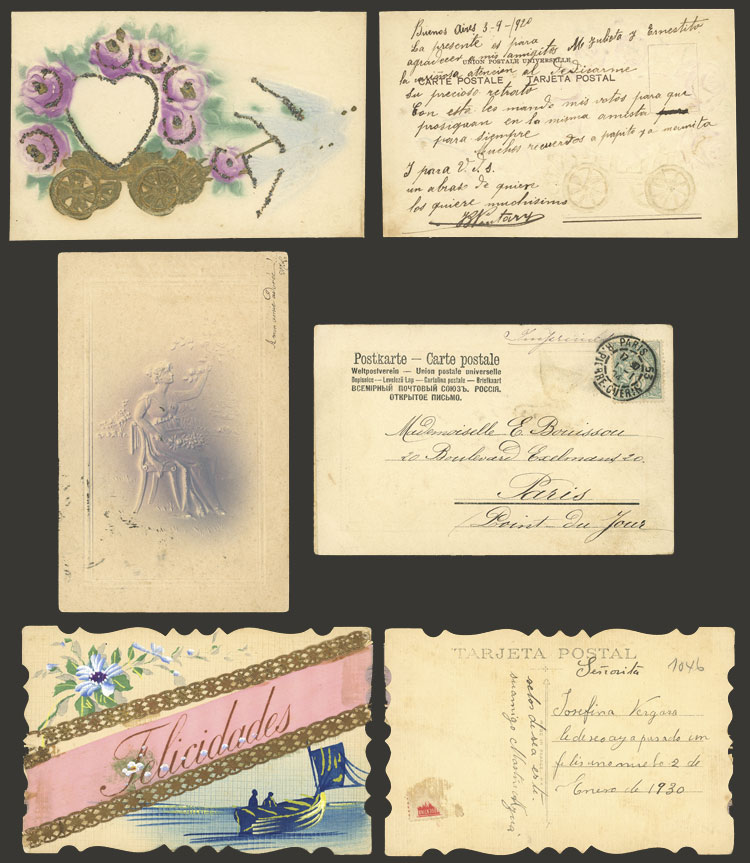 Buenos Aires 3-9-1920
La presente es para
agradecer a mis amiguitos M Zulesta y Ernestito
UNION POSTALE UNIVERSELLE
la cariñosa atencion al dedicarme
CARTE POSTALE TARJETA POSTAL
su precioso retrato
Con esta les mando mis votos para que
prosiguan en la misma amistad
para siempre
Muchos recuerdos a papito y a mamita
I para V.d.s.
un abrazo de quien
los quiere muchisimo
Postkarte — Carte postale
Weltpostverein — Union postale universelle
Dopisnice — Levelezö Lap — Cartolina postale — Briefkaart
ВСЕМІРНЫЙ ПОЧТОВЫЙ СОЮЗЪ. РОССІЯ.
ОТКРЫТОЕ ПИСЬМО.
PARIS 53
R. PIERRE-GUERIN
Mademoiselle E. Bouissou
20 Boulevard Exelmans 20.
Paris
Point-du-Jour
Felicidades
TARJETA POSTAL
Señorita 1046
Josefina Vergara
le deseo aya pasado un
felis año nuebo 2 de
Enero de 1930
se los desea este
su amigo Martin